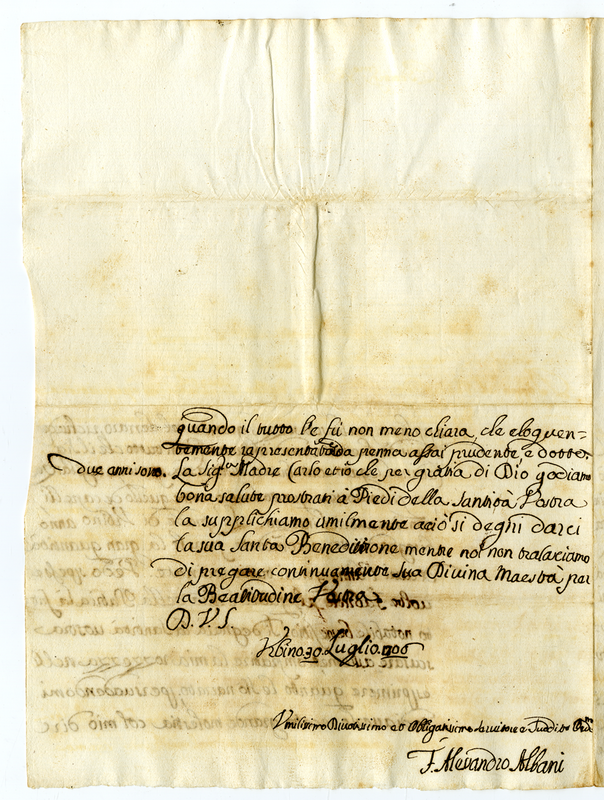 quando il tutto Le fù non meno chiara, che eloquen=
temente rapresentato da penna assai prudente, e dotta
due anni sono. La Sig.ra Madre Carlo et io che per gratia di Dio godiamo
bona salute prostrati à Piedi della Santità Vostra
la supplichiamo umilmente aciò si degni darci
la sua Santa Beneditione mentre noi non tralasciamo
di pregare continuamente Sua Divina Maestà per
la Beatitudine Vostra
D. V. S.
Urbino 30 Luglio 1706
Vmilissimo Divotissimo et Obligatissimo Servitore e Suddito
F. Alesandro Albani